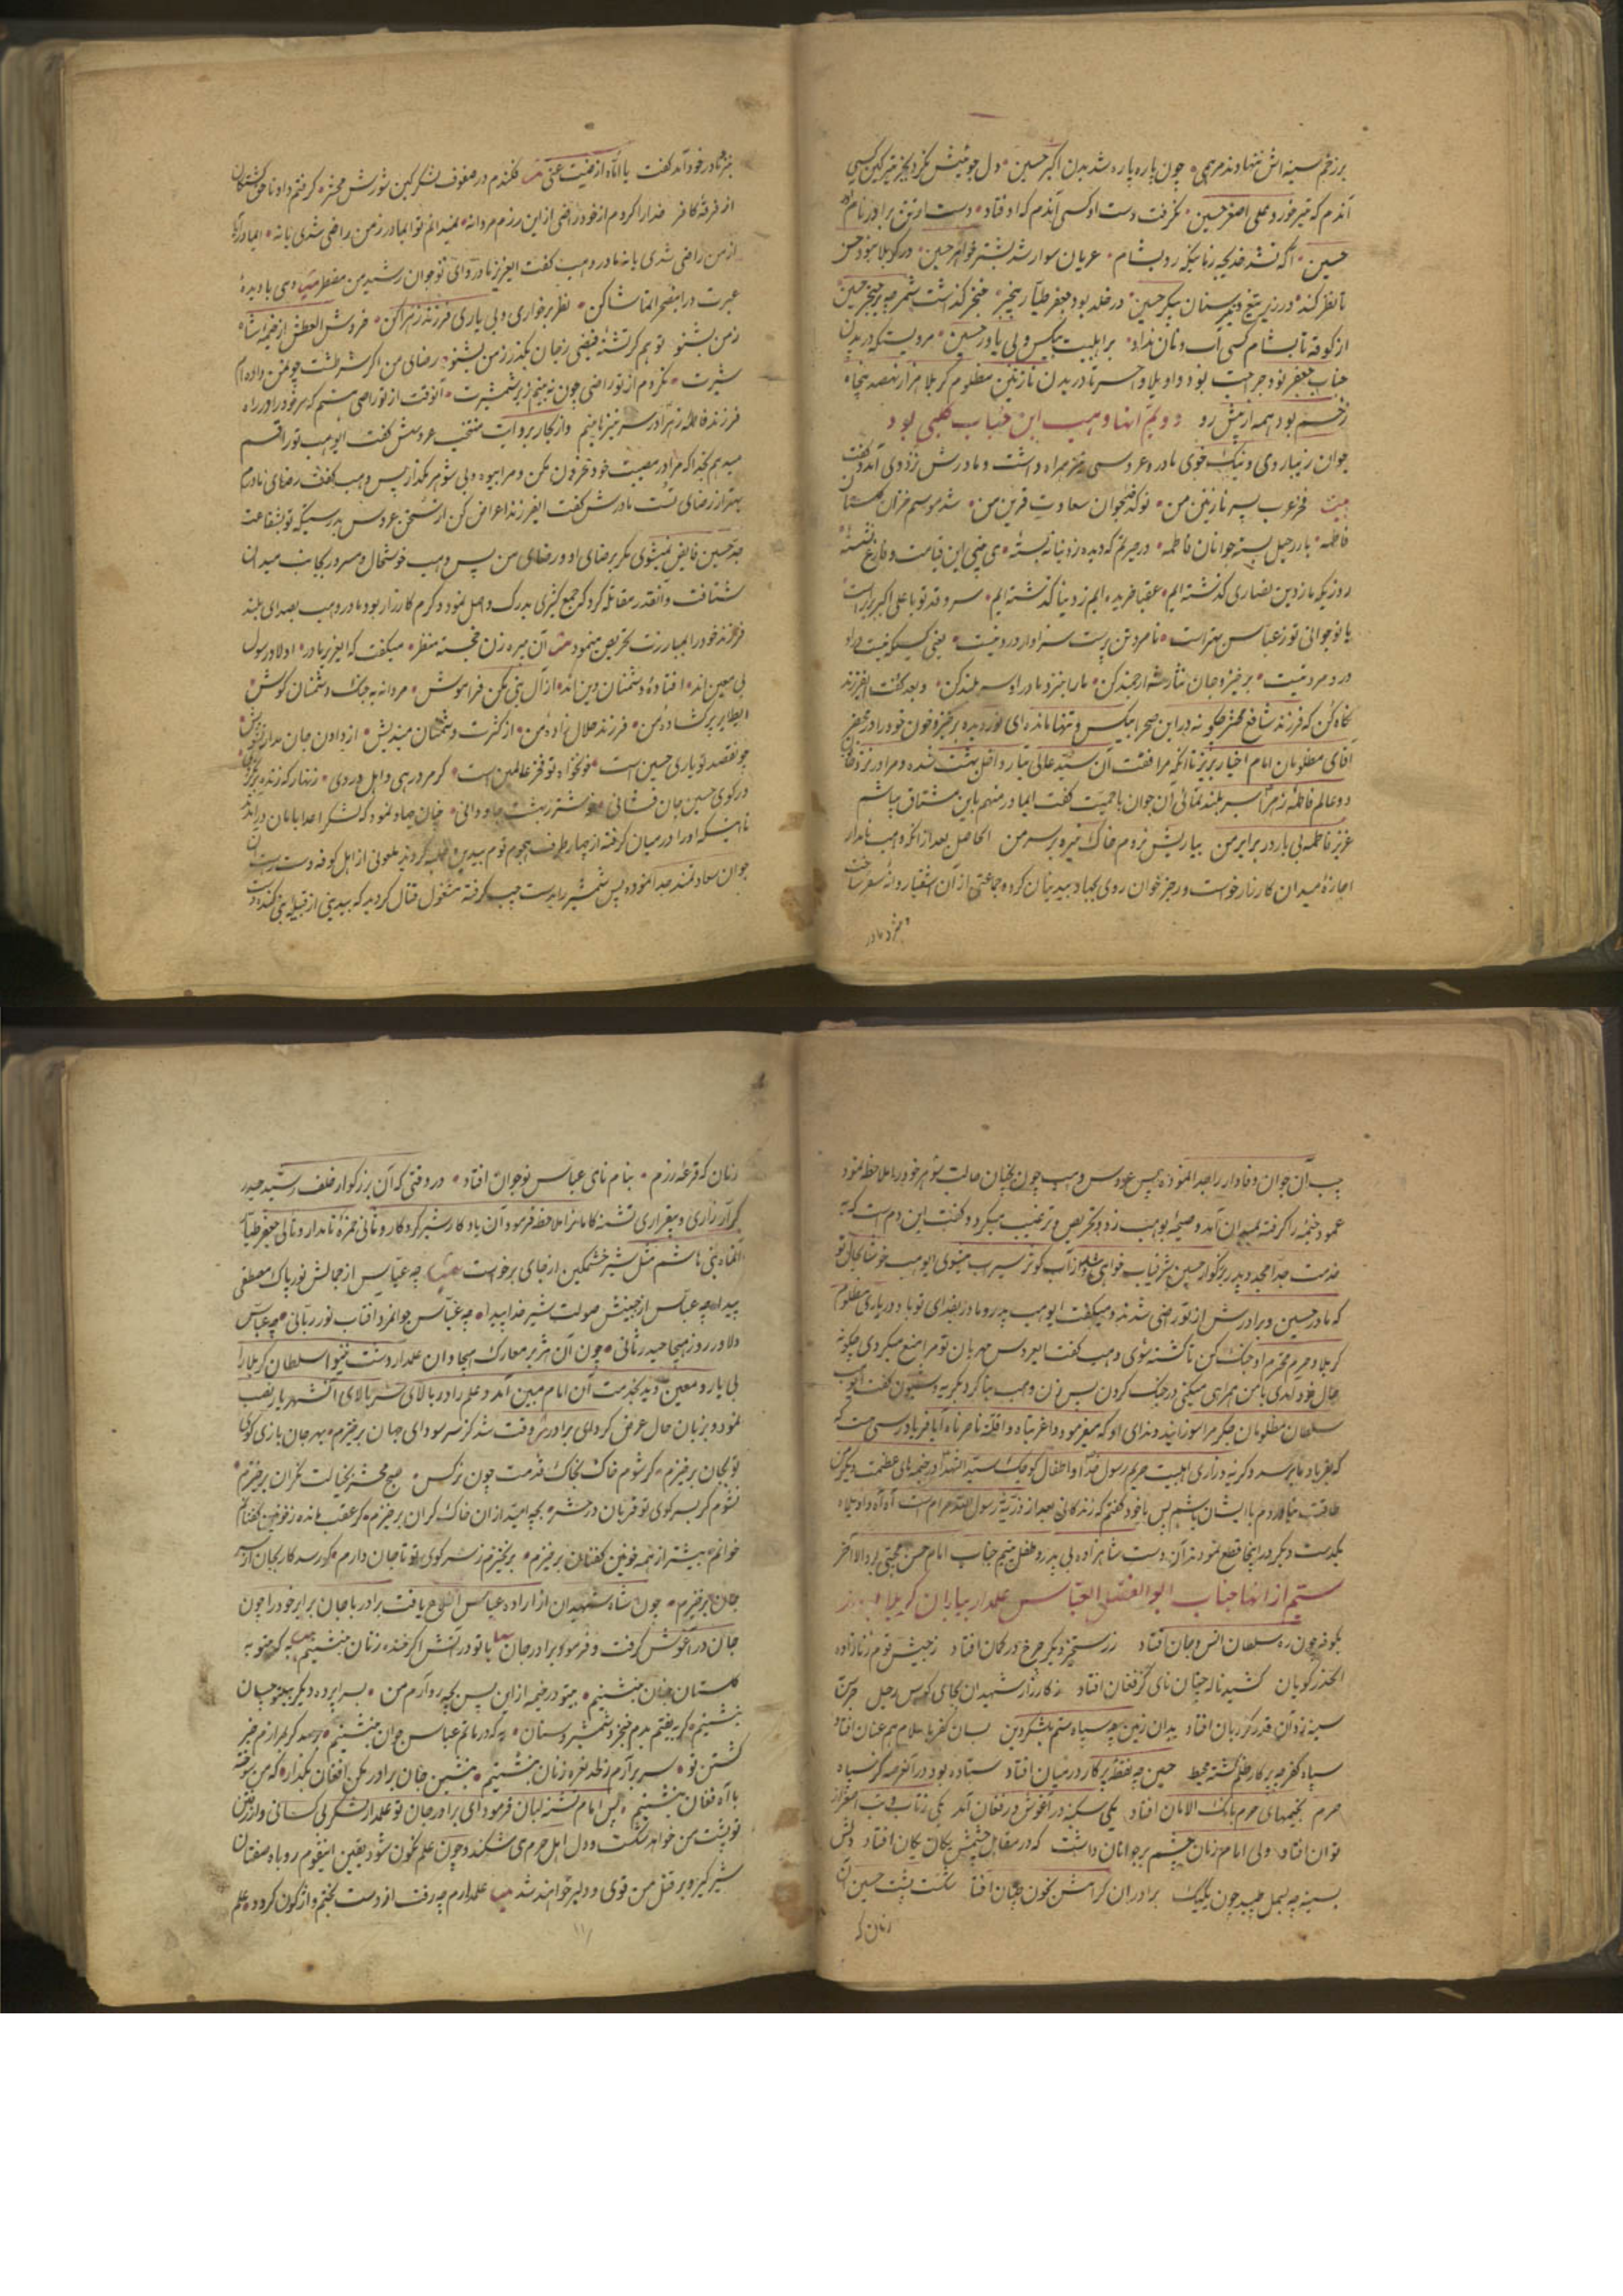 برزخم سینه اش ننهادند مرهمی چون پاره پاره شد بدن اکبر حسین دل جوئیش نکرد بجز تیر کین کسی
آندم که تیر خورد علی اصغر حسین نگرفت دست او کسی آندم که اوفتاد دست از تن برادر نام آور
حسین آگه نشد خدیجه زمانیکه رو بشام عریان سوار شد بشتر خواهر حسین در کربلا نبود حسن
تا نظر کند در زیر تیغ و تیر و سنان پیکر حسین در خلد بود جعفر طیار بیخبر خنجر گذاشت شمر چو بر حنجر حسین
از کوفه تا بشام کسی آب و نان نداد بر اهلبیت بیکس و بی یاور حسین مرویست که در بدن
جناب جعفر نود جراحت بود واویلا وا حسرتا در بدن نازنین مظلوم کربلا هزار نهصد پنجاه
زخم بود همه از پیش رو دویم از آنها وهب ابن جناب کلبی بود
جوان زیباروی و نیک خوی مادر و عروسی نیز همراه داشت و مادرش نزد وی آمد و گفت
بیت فخر عرب پسر نازنین من نوکدخدا جوان سعادت قرین من شد موسم خزان گلستان
فاطمه بار رحیل بسته جوانان فاطمه
روزیکه ما ز دین نصاری گذشته ایم عقبا خریده ایم ز دنیا گذشته ایم سرو قد تو با علی اکبر برابر است
یا نوجوانی تو ز عباس بهتر است نامرد تن پرست سزاوار درد نیست یعنی کسیکه نیست در او
درد مرد نیست برخیز و جان نثار شه ارجمند کن ما را بنزد مادر او سربلند کن و بعد گفت ای فرزند
نگاه کن که فرزند شافع محشر چگونه در این صحرا بیکس و تنها مانده ای نور دیده برخیز و خون خود را در محضر
آقای مظلومان امام اخیار بریز تا آنکه مرافقت آن سید عالی تبار داخل بهشت شده و مرا در نزد خاتون
دو عالم فاطمه زهرا سربلند نمائی آن جوان با حمیت گفت ای مادر منهم باین مشتاق بیاشم
عزیز فاطمه بی یار در برابر من بیاریش نروم خاک تیره بر سر من الحاصل بعد از آنکه وهب نامدار
اجازه میدان کارزار خواست و رجز خوان روی بجهاد بیدینان کرده جماعتی از آن اشقیا روانه سقر ساخت
و نزد مادر
بنزد مادر خود آمد گفت یا اماه ارضیت عنی فکندم در صفوف لشکر کین شورش محشر گرفتم داد ناحق کشتگان
از فرقه کافر خدا را کردم از خود راضی از این رزم مردانه نمیدانم تو ایمادر ز من راضی شدی یا نه ایمادر آیا
از من راضی شدی یا نه مادر وهب گفت ای عزیز مادر و ای نوجوان رشید من دمی با دیده
عبرت در این صحرا تماشا کن نظر بر خواری و بی یاری فرزند زهرا کن خروش العطش از خیمه شاه
زمن بشنو تو هم گر تشنه فیضی ز جان بگذر ز من بشنو رضای من اگر شرطست چون من داده ام
شیرت نگردم از تو راضی چون نه بینم زیر شمشیرت آنوقت از تو راضی میشم که سر خود را در راه
فرزند فاطمه زهرا در سر نیزه نه بینم و از بکار بروایت منتخب عروسش گفت ایوهب تو را قسم
میدهم بخدا که مرا در مصیبت خود محزون مکن و مرا بیوه و بی شوهر مگذار پس وهب گفت رضای مادرم
بهتر از رضای تست مادرش گفت ای فرزند اعراض کن از سخن عروس بدرستیکه تو بشفاعت
جد حسین فایض نمیشوی مگر برضای او و رضای من پس وهب خوشحال و مسرور بجانب میدان
شتافت و آنقدر مقاتله کرد که جمع کثیری بدرک واصل نمود و گرم کارزار بود مادر وهب بصدای بلند
فرزند خود را بمبارزت تحریص مینمود آن شیره زن خجسته منظر میگفت که ای عزیز مادر اولاد رسول
بی معین اند افتاده دشمنان دین اند از آل نبی مکن فراموش مردانه به جنگ دشمنان کوش
ای طایر پر گشاده من فرزند حلال زاده من از کثرت دشمنان میندیش از دادن جان مدار تشویش
چو مقصد تو یاری حسین است خونخواه تو فخر عالمین است گر مرد رهی و اهل دردی زنهار که زنده برنگردی
در کوی حسین جان فشانی خوشتر ز بهشت جاودانی چنان جهاد نمود که لشکر اعدا بامان درآمدند
تا اینکه او را در میان گرفته از چهار طرف هجوم قوم بیدین غلبه کردند ملعونی از اهل کوفه دست راست آن
جوان سعادتمند جدا نموده پس شمشیر را بدست چپ گرفته مشغول قتال گردید که بیدینی از قبیله بنی کنده دست
چپ آن جوان وفادار را جدا نموده پس عروس وهب چون بچنان حالت شوهر خود را ملاحظه نمود
عمود خیمه را گرفته بمیدان آمد و ضمیمه وهب نزد تحریص و ترغیب میکرد و گفت این دم است که به
خدمت جد امجد و پدر بزرگوار حسین شرفیاب خواهی شد و از آب کوثر سیراب میشوی ایوهب خوشا بحال تو
که مادر حسین و برادرش از تو راضی شدند و میگفت ایوهب پدر و مادرم بفدای تو باد در یاری مظلوم
کربلا و حرم محترم او جنگ کن تا کشته شوی وهب گفت ایعروس مهربان تو مرا منع میکردی چگونه
حال خود آمدی با من همراهی میکنی در جنگ کردن پس زن وهب بنا کرد بگریه و شیون گفت ایوهب
سلطان مظلومان جگر مرا سوزانید و ندای او که میفرمود واغربتاه واقلة ناصراه آیا فریادرسی هست که
که بفریاد ما برسد و گریه و زاری اهلبیت حریم رسول خدا و اطفال کوچک سید الشهدا در خیمه های عظمت دیگر من
طاقت نیاوردم با ایشان باشم پس با خود گفتم که زندگانی بعد از ذریه رسول الله حرام است آه آه واویلاه
یکدست دیگر در اینجا قطع نمودند آن دست شاهزاده بی پدر و طفل یتیم جناب امام حسن مجتبی بود الا آخر
سیم از انها جناب ابوالفضل العباس علمدار یاران کربلا بود
بکوفه چون ره سلطان انس و جان افتاد ز رستخیز دیگر چرخ در گمان افتاد ز جیش قوم زنازاده
الحذر گویان کشید ناله چنان نای کز فغان افتاد ز کارزار شهیدان بجای کوس رحیل جرس
سینه زد آن قدر کز زبان افتاد بدان زمین چو سپاه ستم بلشکر دین بسان کفر باسلام هم عنان افتاد
سپاه کفر چو پرکار ظلم گشته محیط حسین چو نقطه پرکار در میان افتاد ستاده بود در آنعرصه کز سپاه
حرم بخیمهای حرم بانگ الامان افتاد یکی سکینه در آغوش در فغان آمد یکی ز تاب و تب اصغر از
توان افتاد ولی امام زمان چشم بر جوانان داشت که در مقابل چشمش یکان یکان افتاد دلش
بسینه چو بسمل طپید چون یکیک برادران گرامش بخون چنان افتاد شکست پشت حسین آن
زمان که
زمان که قرعه رزم بنام نامی عباس نوجوان افتاد در وقتی که آن بزرگوار خلف رشید حیدر
کرار زاری و بیقراری تشنه کامان را ملاحظه فرمود آن یادگار شیر کردگار و ثانی حمزه نامدار و تالی جعفر طیار
آنماه بنی هاشم مثل شیر خشمگین از جای برخواست چه عباس از جمالش نور پاک مصطفی
پیدا چه عباس از جبینش صولت شیر خدا پیدا چه عباس جوانمرد آفتاب نور ربانی چه عباس
دلاور روز هیجا حیدر ثانی چون آن هژبر معارک هیجا و ان علمدار دشت نینوا سلطان کربلا را
بی یار و معین دید بخدمت آن امام مبین آمد و علم را در بالای سر بالای آنشهریار نصب
نمود و بزبان حال عرض کرد ای برادر وقت شد کز سر سودای جهان برخیزم بهر جان بازی کوی
تو بجان برخیزم گر شوم خاک بخاک قدمت چون نرگس صبح محشر بخیالت نگران برخیزم
نشوم گر بسر کوی تو قربان در حشر بچه امید از ان خاک گران برخیزم گر عقب مانده ز خونین کفنان
خوانم بیشتر از همه خونین کفنان برخیزم برنخیزم ز سر کوی تو تا جان دارم گر رسد کار بجان از سر
جان برخیزم چون شاه شهیدان از اراده عباس اطلاع یافت برادر با جان برابر خود را چون
جان در آغوش گرفت و فرمود برادر جان با تو در آتش اگر خنده زنان بنشینم به که بیتو به
گلستان جنان بنشینم بیتو در خیمه از این پس بچه رو آرم من بسراپرده دیگر بچه عنوان
بنشینم گر بیفتم بدم خنجر و شمشیر و سنان به که در ماتم عباس جوان بنشینم
کشتن تو سر برآرم ز لحد نعره زنان بنشینم بنشین جان برادر مکن افغان بگذار که من سوخته
با آه و فغان بنشینم پس امام تشنه لبان فرمود ای برادر جان تو علمدار لشکر بی کسانی و از رفتن
تو پشت من خواهد شکست و دل اهل حرم می شکند و چون علم نگون شود یقین اینقوم روباه صفتان
شیر گیر و بر قتل من قوی و دلیر خواهند شد علمدارم چه رفت از دست بختم واژگون گردد علم